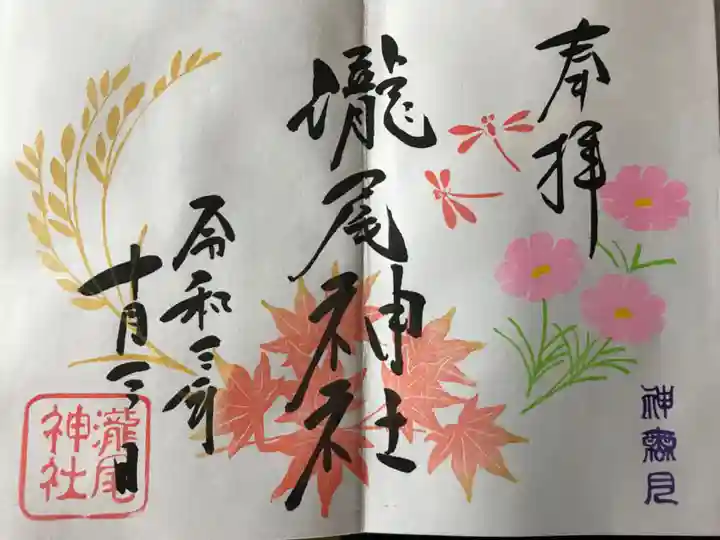 奉拝
神無月
瀧尾神社
令和三年
十月三日
瀧尾
神社